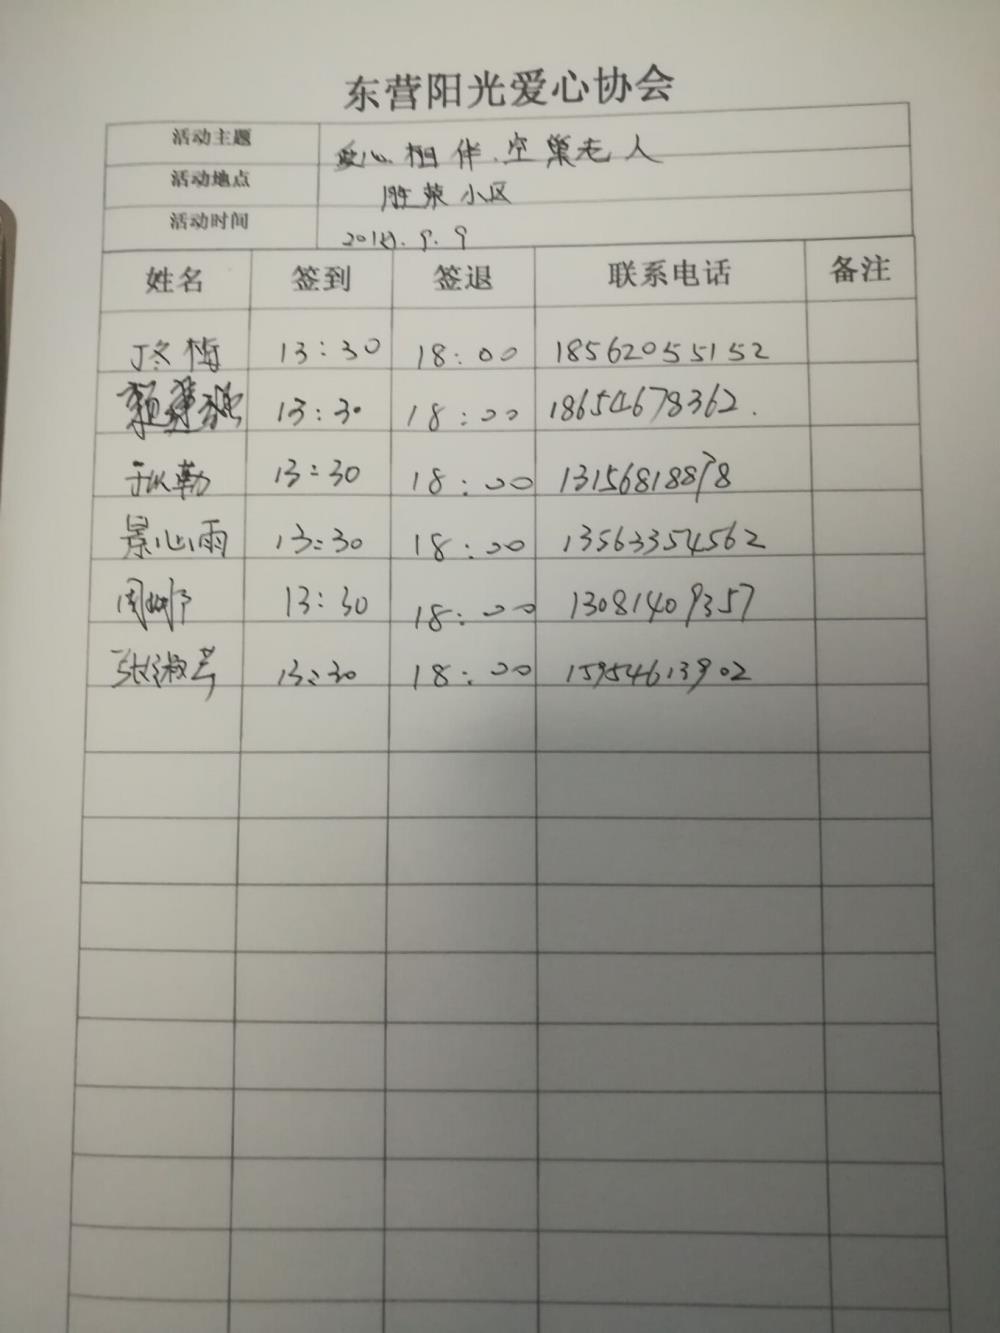 东营阳光爱心协会
活动主题 爱心相伴.空巢老人
活动地点 胜荣小区
活动时间 9.9
姓名 签到 签退 联系电话 备注
丁冬梅 13:30 18:00 18562055152
13:30 18:00 18654678362.
13:30 18:00 13156818878
景心雨 13:30 18:00 13563354562
周娜 13:30 18:00 13081409357
张淑芳 13:30 18:00 15954613902